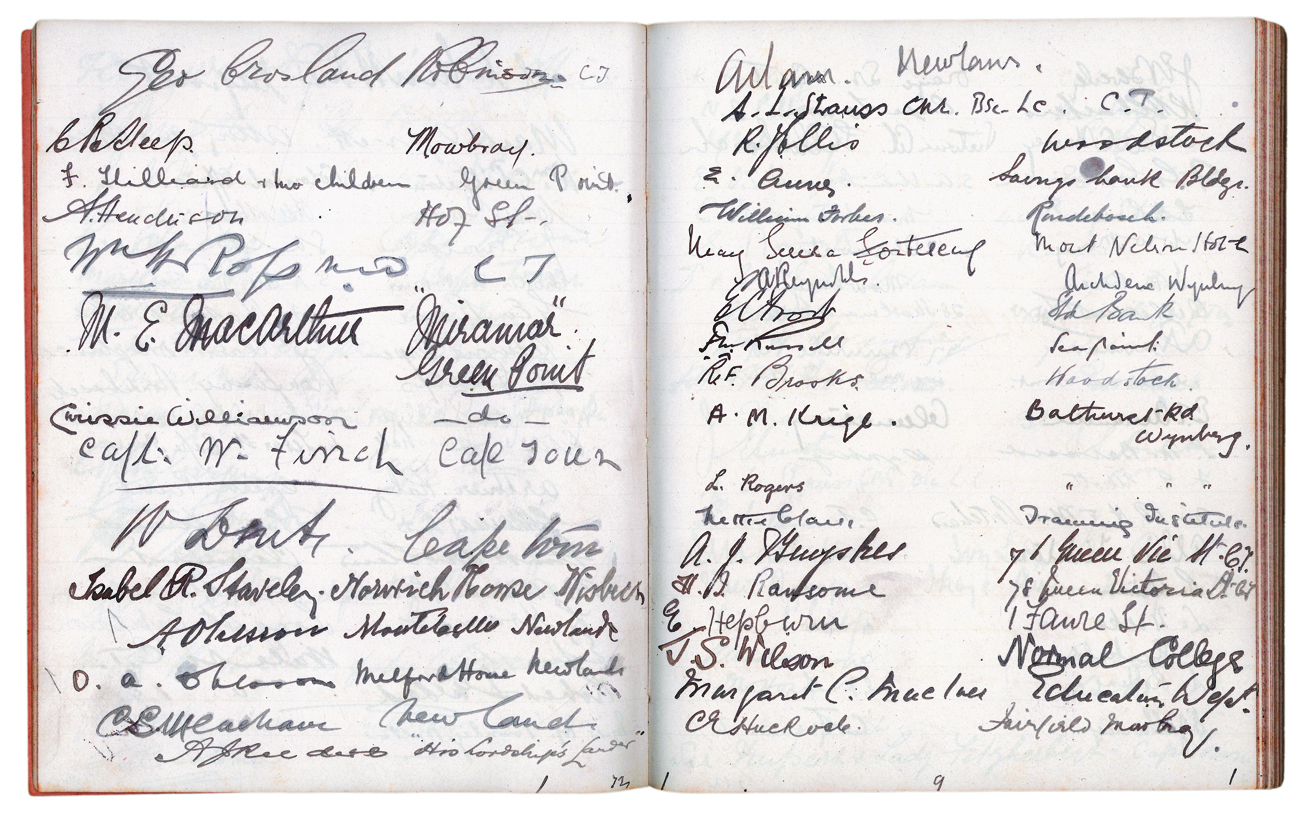 Geo Crosland Robinson C T
Mowbray.
F. Hilliard & two children Green Point.
A. Hendrison Hof St-.
Wm H Ross M.D C T
M. E. MacArthur "Miramar".
Green Point
Chrissie Williamson — do —
Capt. W. Finch Cape Town
W Cape Town
Isabel R. Staveley. Norwich House Wisbech
A Ohlsson Montebello Newlands
O. a. Ohlsson Newlands
C. S. Meacham Newlands
"His Lordship's Larder"
1
Adam. Newlands.
A. L. Strauss Chr. Bsc. Lc. C. T.
R. Jollis Woodstock
E. Savings bank Bldgs.
William Forbes. Rondebosch.
May Mount Nelson Hotel
A Reynolds. Wynberg
E C Frost Std Bank
Russell Sea point.
R. F. Brooks. Woodstock
A. M. Krige. Bathurst Rd
Wynberg.
L. Rogers " " "
Training Institute.
A. J. 71 Queen Vic St. CT.
H. B. Ransome 78 Queen Victoria St. CT
E. Hepburn 1 Faure St.
J. S. Wilson Normal College
Margaret C. MacIver Education Dept.
Fairfield Mowbray.
1 9 1